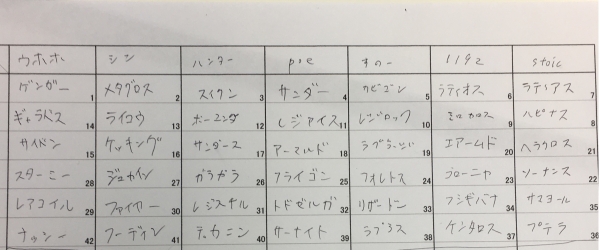 ウホホ シン ハンター poe すのー 1192 stoic
ゲンガー 1 メタグロス 2 スイクン 3 サンダー 4 カビゴン 5 ラティオス 6 ラティアス 7
ギャラドス 14 ライコウ 13 ボーマンダ 12 レジアイス 11 レジロック 10 ミロカロス 9 ハピナス 8
サイドン 15 ケッキング 16 サンダース 17 アーマルド 18 ラグラージ 19 エアームド 20 ヘラクロス 21
スターミー 28 ジュカイン 27 ガラガラ 26 フライゴン 25 フォレトス 24 ブローニャ 23 ソーナンス 22
レアコイル 29 ファイヤー 30 レジスチル 31 トドゼルガ 32 リザードン 33 フシギバナ 34 サマヨール 35
ナッシー 42 フーディン 41 テッカニン 40 サーナイト 39 ラプラス 38 ケンタロス 37 プテラ 36